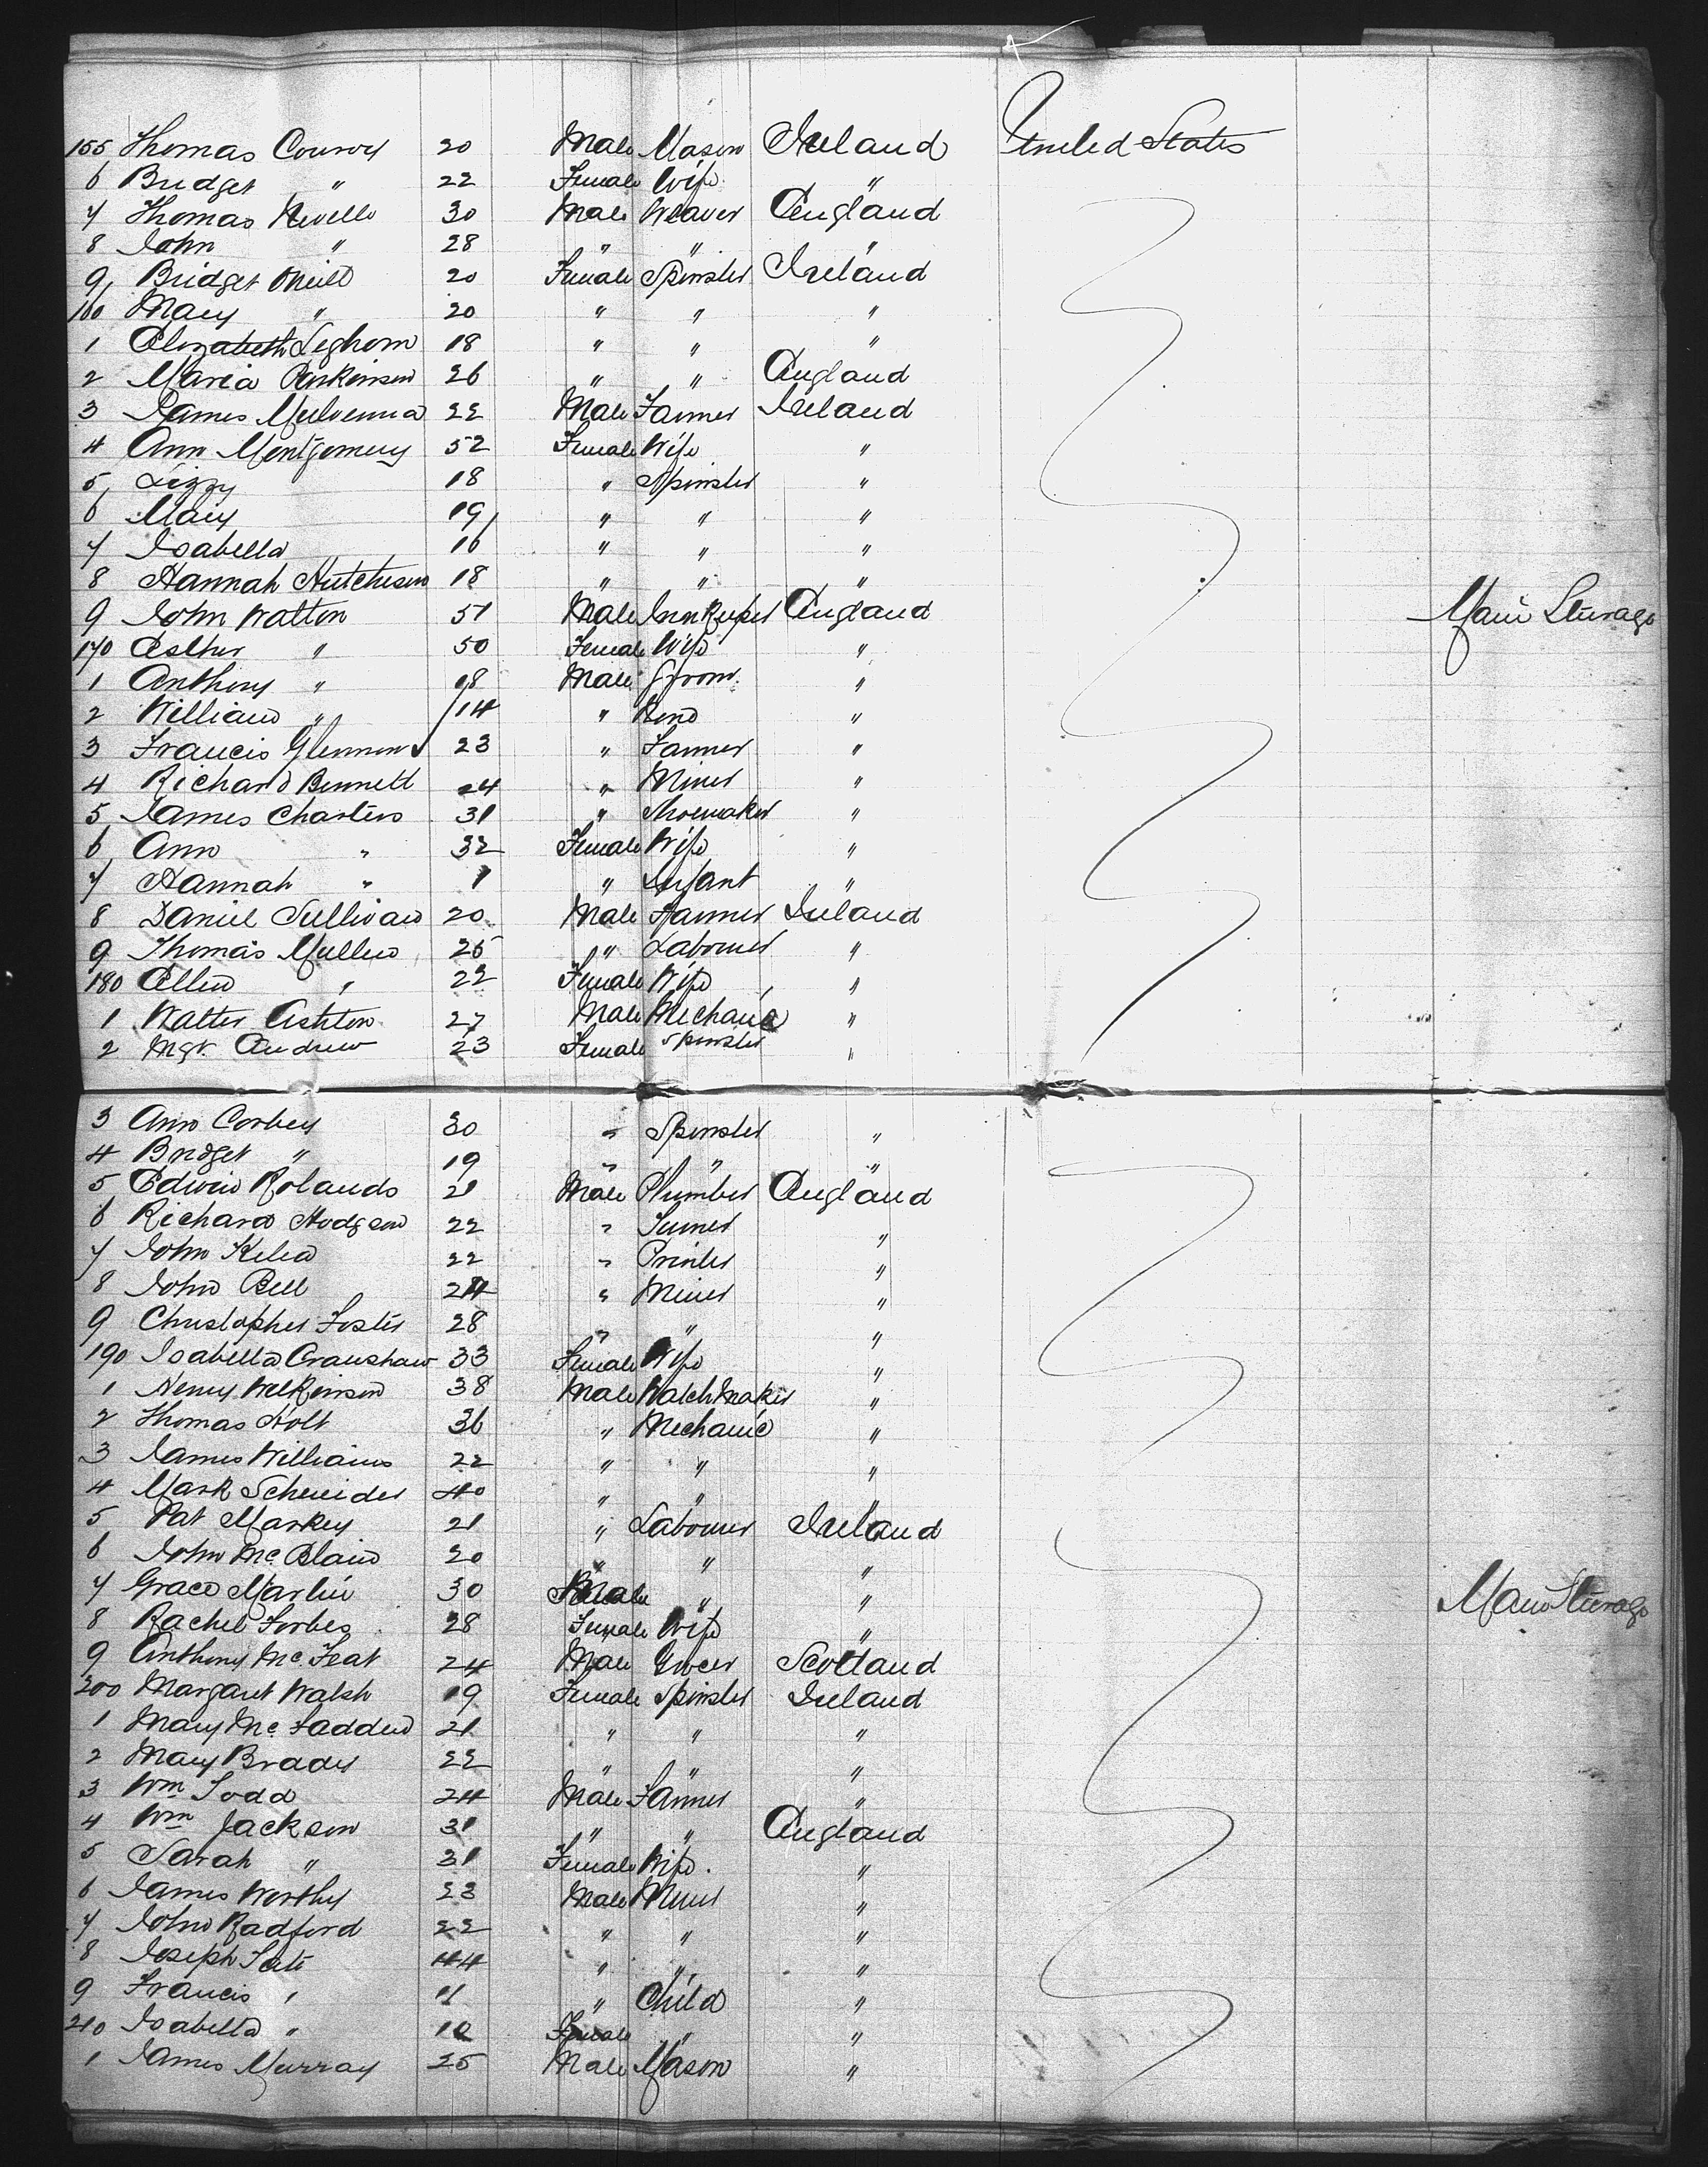 155 Thomas Conroy 20 Male Mason Ireland United States
6 Bridget " 22 Female Wife "
7 Thomas Nevelle 30 Male Weaver England
8 John " 28 " " "
9 Bridget Oneill 20 Female Spinster Ireland
160 Mary " 20 " " "
1 Elizabeth Leghorn 18 " " "
2 Maria Parkinson 26 " " England
3 James Mulvenna 22 Male Farmer Ireland
4 Ann Montgomery 52 Female Wife "
5 Lizzy 18 " Spinster "
6 Mary 19 " " "
7 Isabella 16 " " "
8 Hannah Hutcheson 18 " " "
9 John Walton 51 Male Innkeeper England Main Steerage
170 Esther " 50 Female Wife "
1 Anthony " 18 Male Groom "
2 William " 14 " "
3 Francis Glennon 23 " Farmer "
4 Richard Bennett 24 " Miner "
5 James Charters 31 " Shoemaker "
6 Ann " 32 Female Wife "
7 Hannah " 1 " Infant "
8 Daniel Sullivan 20 Male Farmer Ireland
9 Thomas Mullen 25 " Labourer "
180 Ellen " 22 Female Wife "
1 Walter Ashton 27 Male Mechanic "
2 Mgt. Andrew 23 Female Spinster "
3 Ann Corbey 30 " Spinster "
4 Bridget " 19 " " "
5 Edwin Rolands 21 Male Plumber England
6 Richard Hodgson 22 " "
7 John 22 " Printer "
8 John Bell 24 " Miner "
9 Christopher Foster 28 " " "
190 Isabella Cranshaw 33 Female Wife "
1 Henry Wilkinson 38 Male Watch Maker "
2 Thomas Holt 36 " Mechanic "
3 James Williams 22 " " "
4 Mark Schneider 40 " " "
5 Pat Markey 21 " Labourer Ireland
6 John Mc.Blain 20 " " "
7 Grace Martin 30 " "
8 Rachel Forbes 28 Female Wife "
9 Anthony Mc.Feat 24 Male Grocer Scotland Main Steerage
200 Margaret Walsh 19 Female Spinster Ireland
1 Mary Mc.Fadden 21 " " "
2 Mary Brady 22 " " "
3 Wm Todd 24 Male Farmer "
4 Wm Jackson 31 " " England
5 Sarah " 31 Female Wife. "
6 James Worthy 23 Male Miner "
7 John Radford 22 " " "
8 Joseph 44 " " "
9 Francis " 11 " Child "
210 Isabella " 10 Female " "
1 James Murray 25 Male Mason "